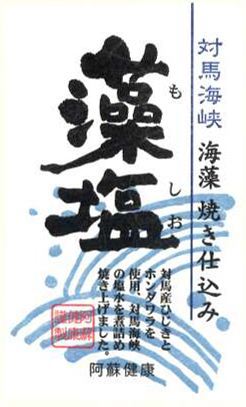 対馬海峡 海藻 焼き仕込み
藻塩
もしお
対馬産ひじきと
ホンダワラを
使用、対馬海峡
の塩水を煮詰め
焼き上げました。
阿蘇健康